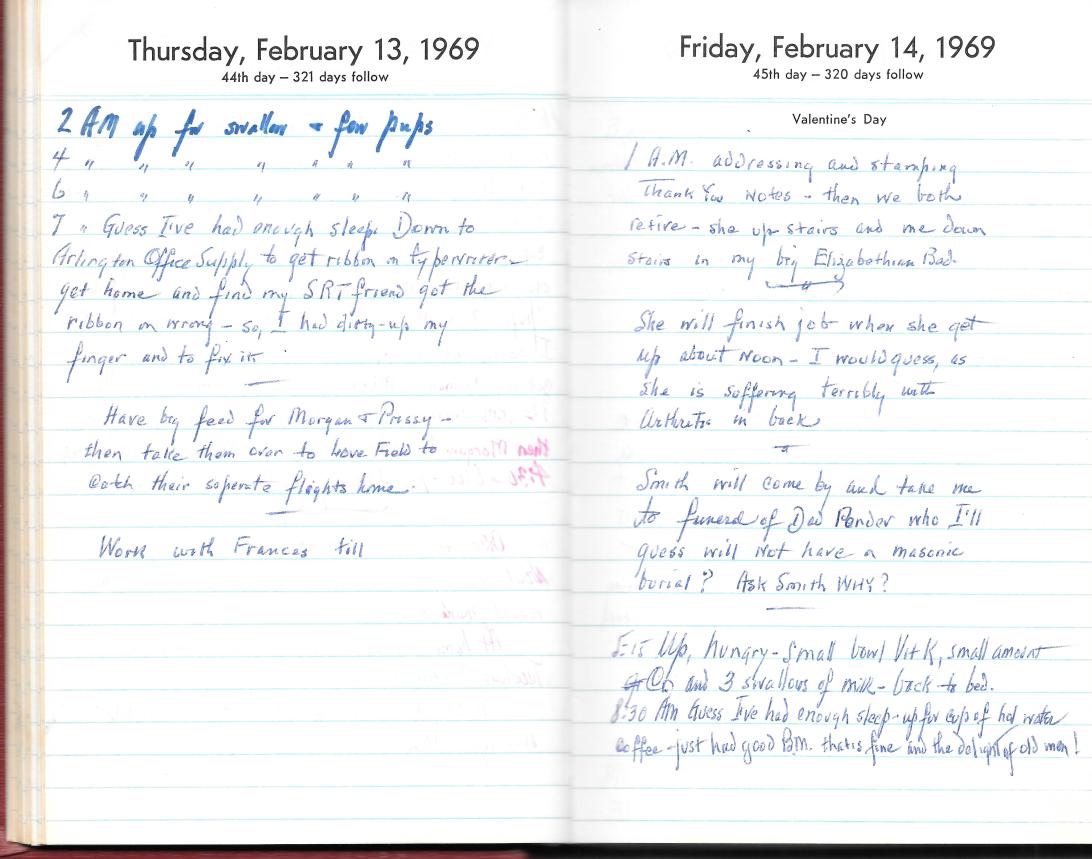 Thursday, February 13, 1969
44th day – 321 days follow
2 AM up for swallow + few pups
4 " " " " " " "
6 " " " " " " "
7 " Guess I've had enough sleep. Down to
Arlington Office Supply to get ribbon on typewriter –
get home and find my SRT friend got the
ribbon on wrong – so, I had dirty-up my
finger and to fix it.
Have big feed for Morgan + Prissy –
then take them over to Love Field to
catch their seperate flights home.
Work with Frances till
Friday, February 14, 1969
45th day – 320 days follow
Valentine's Day
1 A.M. addressing and stamping
Thank You Notes – then we both
retire – she up stairs and me down
stairs in my big Elizabethian Bed.
She will finish job when she get
up about Noon – I would guess, as
she is suffering terribly with
Arthritis in back
Smith will come by and take me
to funeral of Dad Ponder who I'll
guess will Not have a masonic
burial? Ask Smith WHY?
5:15 Up, hungry – Small bowl Vit K, small amount
and 3 swallows of milk – back to bed.
8:30 AM Guess I've had enough sleep – up for cup of hot water
coffee – just had good B.M. thats fine and the delight of old men!